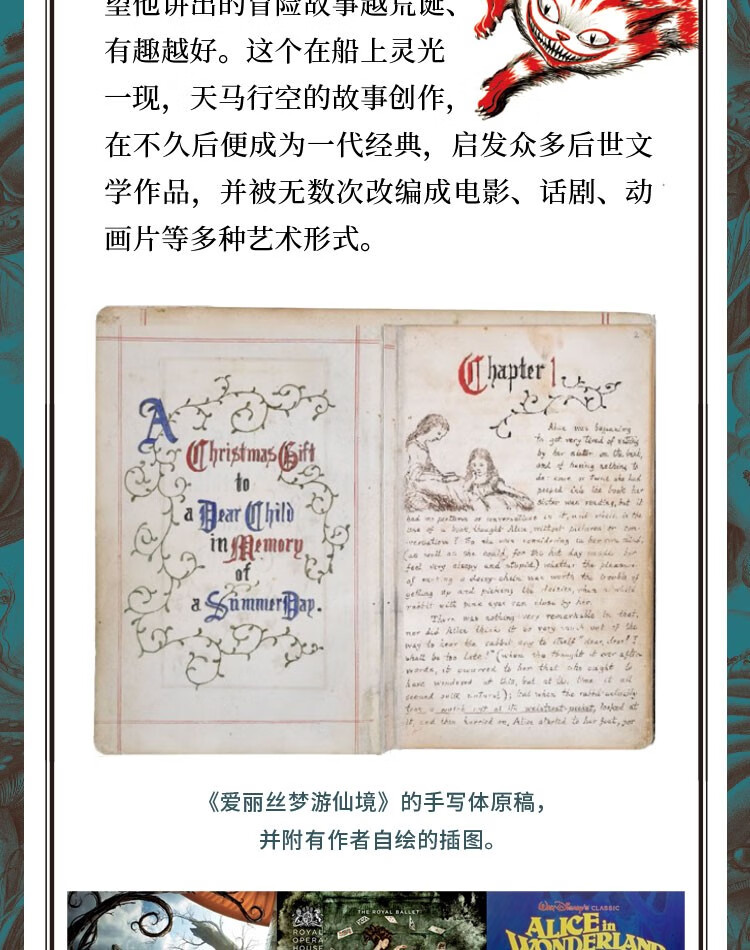 望他讲出的冒险故事越荒诞、
有趣越好。这个在船上灵光
一现，天马行空的故事创作，
在不久后便成为一代经典，启发众多后世文
学作品，并被无数次改编成电影、话剧、动
画片等多种艺术形式。
A
Christmas Gift
to
a Dear Child
in Memory
of
a Summer Day.
Chapter 1
Alice was beginning
to get very tired of sitting
by her sister on the bank,
and of having nothing to
do: once or twice she had
peeped into the book her
sister was reading, but it
had no pictures or conversations in it, and where is the
use of a book, thought Alice, without pictures or con-
versations? So she was considering in her own mind,
(as well as she could, for the hot day made her
feel very sleepy and stupid,) whether the pleasure
of making a daisy-chain was worth the trouble of
getting up and picking the daisies, when a white
rabbit with pink eyes ran close by her.
There was nothing very remarkable in that,
nor did Alice think it so very much out of the
way to hear the rabbit say to itself "dear, dear! I
shall be too late!" (when she thought it over after-
wards, it occurred to her that she ought to
have wondered at this, but at the time it all
seemed quite natural); but when the rabbit actually
took a watch out of its waistcoat-pocket, looked at
it, and then hurried on, Alice started to her feet, for
《爱丽丝梦游仙境》的手写体原稿，
并附有作者自绘的插图。
ROYAL
OPERA
HOUSE
THE ROYAL BALLET
Walt Disney's CLASSIC
ALICE in
WONDERLAND